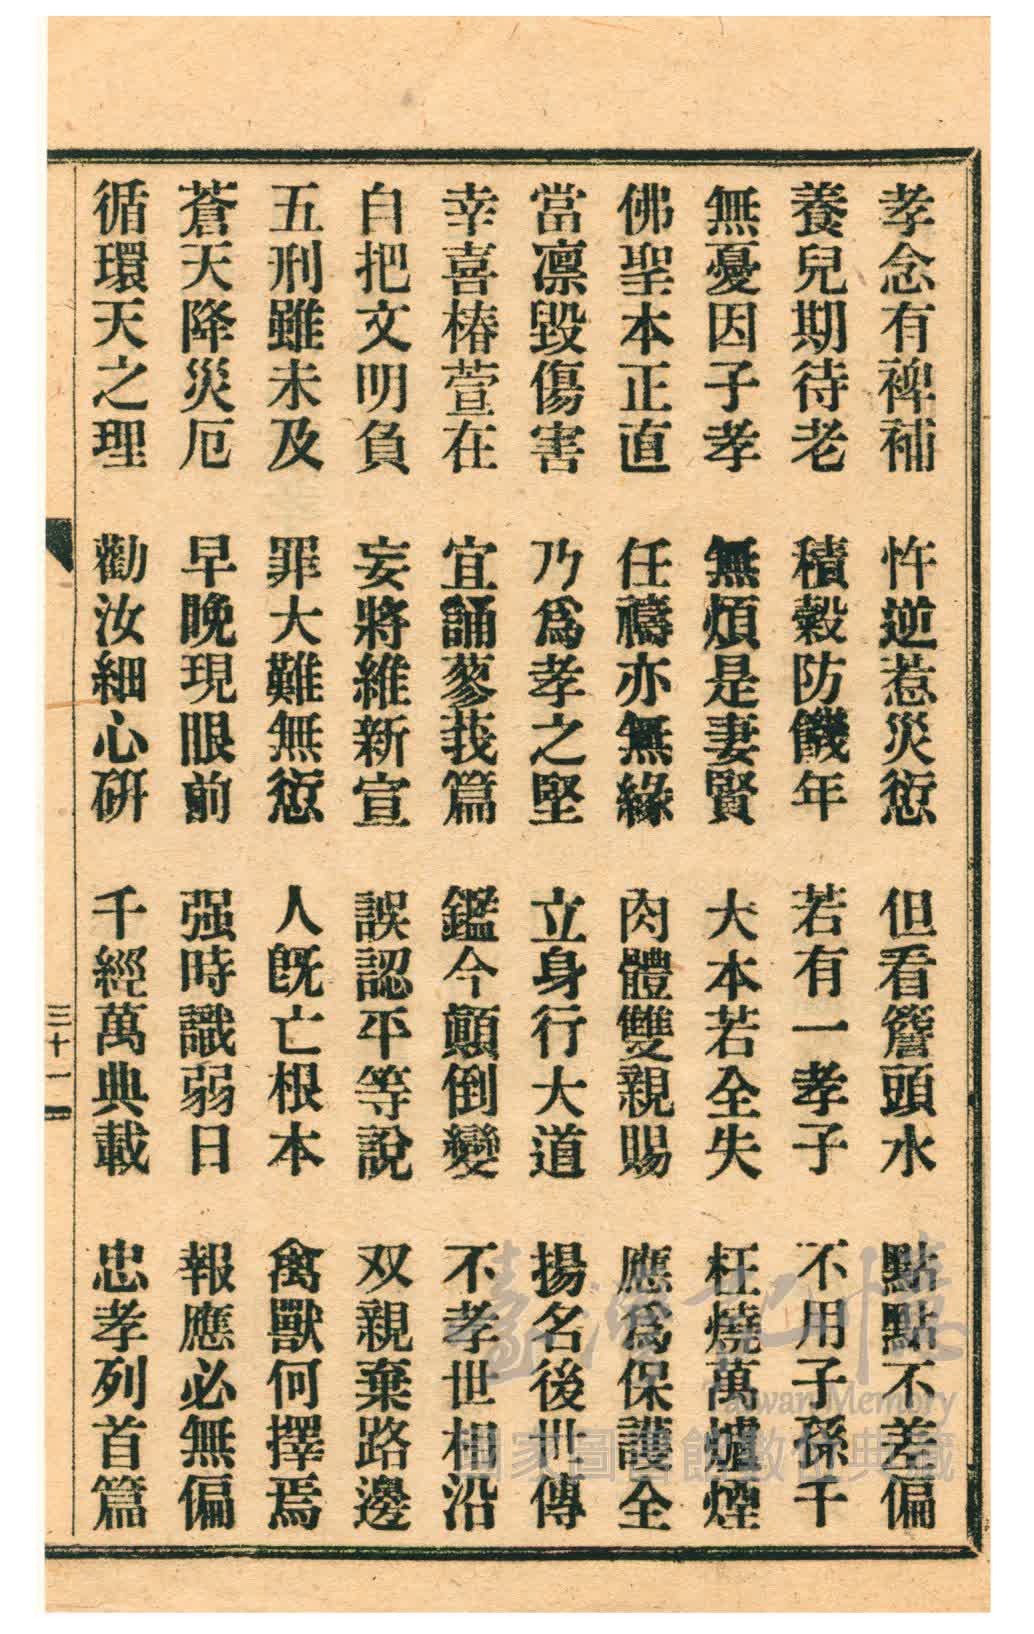 孝念有裨補　忤逆惹災愆　但看簷頭水　點點不差偏
養兒期待老　積穀防饑年　若有一孝子　不用子孫千
無憂因子孝　無煩是妻賢　大本若全失　枉燒萬爐煙
佛聖本正直　任禱亦無緣　肉體雙親賜　應為保護全
當凛毀傷害　乃為孝之堅　立身行大道　揚名後世傳
幸喜椿萱在　宜誦蓼莪篇　鑑今顛倒變　不孝世相沿
自把文明負　妄將維新宣　誤認平等說　双親棄路邊
五刑雖未及　罪大難無愆　人既亡根本　禽獸何擇焉
蒼天降災厄　早晚現眼前　强時識弱日　報應必無偏
循環天之理　勸汝細心研　千經萬典載　忠孝列首篇
三十一
臺灣記憶
Taiwan Memory
國家圖書館數位典藏